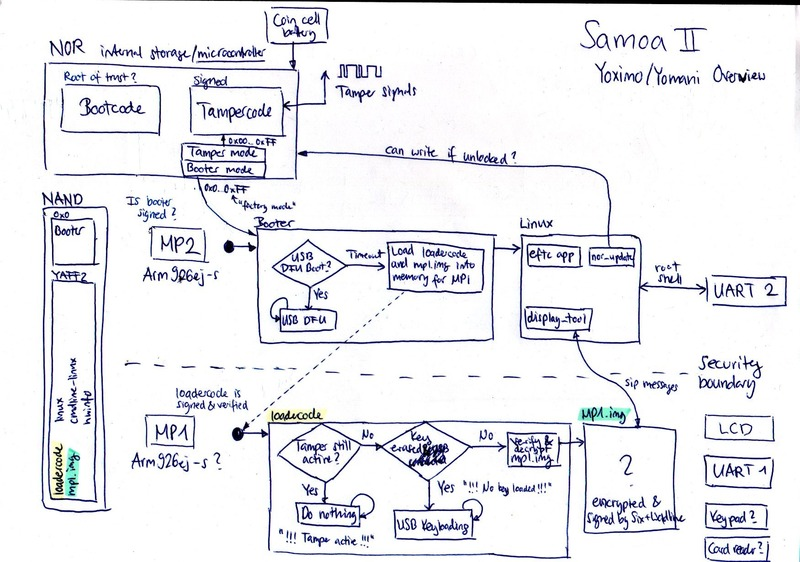 Samoa II
Yoximo/Yomani Overview
Coin cell
battery
NOR internal storage/microcontroller
Root of trust?
Bootcode
Signed
Tampercode
Tamper signals
0x00..0xFF
Tamper mode
Booter mode
0x0..0xFF
"factory mode"
can write if unlocked?
NAND
0x0
Booter
YAFF2
linux
cmdline-linux
hwinfo
loadercode
mp1.img
Is booter
signed?
MP2
Arm926ej-s
Booter
USB
DFU Boot?
Timeout
Load loadercode
and mp1.img into
memory for MP1
Yes
USB DFU
Linux
eftc app
nor_update
display_tool
root
shell
UART 2
Security
boundary
sip messages
loadercode is
signed & verified
MP1
Arm926ej-s ?
loadercode
Tamper still
active?
No
Key
erased
No
verify &
decrypt
mp1.img
Yes
Do nothing
"!!! Tamper active !!!"
Yes
"!!! No key loaded !!!"
USB Keyloading
MP1.img
?
encrypted &
signed by Six+
LCD
UART 1
Keypad?
Card reader?